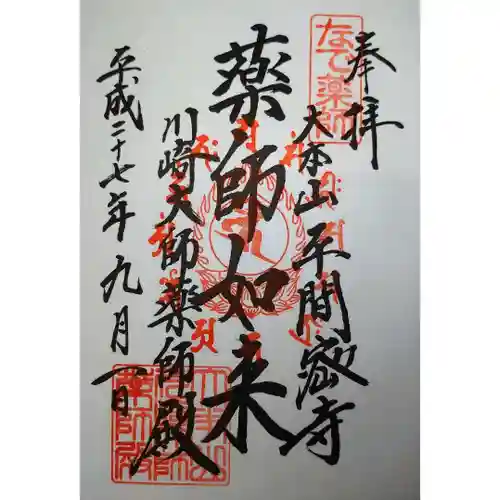 奉拝
なで薬師
大本山平間寺
薬師如来
川崎大師薬師殿
平成二十七年九月一日